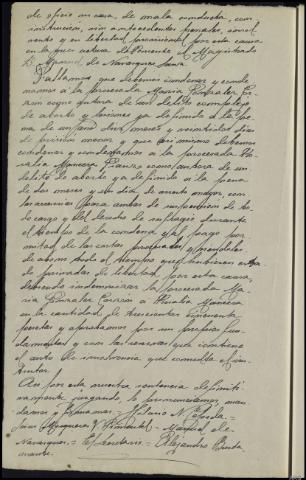 de oficio su casa, de mala conducta, con
instrucción, sin antecedentes penales, insol-
vente y en libertad provisional por esta causa
en la que actúa de Ponente el Magistrado
D. Manuel de Navarques Sanz.
Fallamos que debemos condenar y conde
namos a la procesada María González Co-
rzán como autora de un delito complejo
de aborto y lesiones ya definido a la pe
na de un año dos meses y veintiun días
de prisión menor y que asimismo debemos
condenar y condenamos a la procesada
Muñecas como autora de un
delito de aborto ya definido a la pena
de dos meses y un día de arresto mayor, con
las accesorias para ambas de suspensión de to
do cargo y del derecho de sufragio durante
el tiempo de la condena y al pago por
mitad de las costas procesales y
de abono todo el tiempo que estuvieron
de privadas de libertad por esta causa,
debiendo indemnizar la procesada Ma
ría González Corzán a Muñecas
en la cantidad de trescientas cincuenta
pesetas y aprobamos por sus propios fun
damentos y con las reservas que contiene
el auto de insolvencia que consulta el ins-
tructor.
Así por esta nuestra sentencia definiti
vamente juzgando, lo pronunciamos, man
damos y firmamos.= Hilario N. Cepeda=
Juan Pimentel.- Manuel de
Navarques.= Es ponderia.= Alejandro Busta
mante.